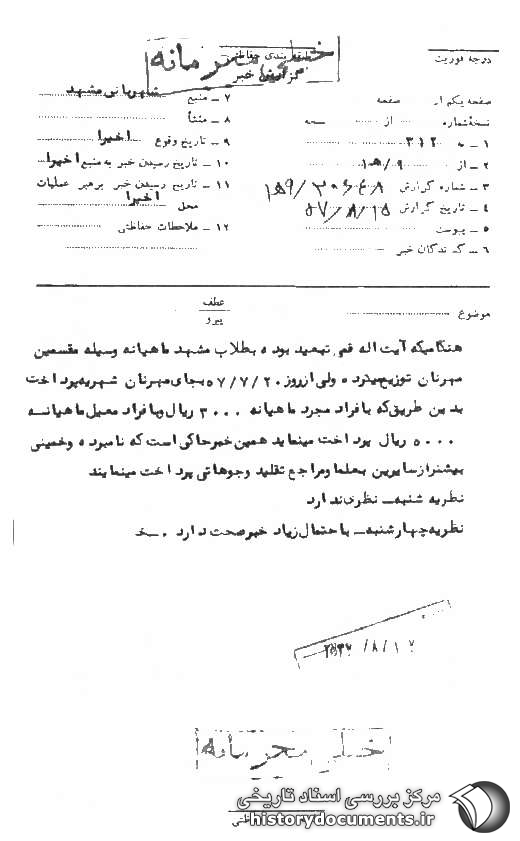 خیلی محرمانه
طبقه بندی حفاظتی
گزارش خبر
درجه فوریت
صفحه یکم از صفحه
نسخه شماره از نسخه
۱ ـ به ۳۱۲
۲ ـ از
۳ ـ شماره گزارش
۴ ـ تاریخ گزارش ۵۷/۸/۱۵
۵ ـ پیوست
۶ ـ گیرندگان خبر
۷ ـ منبع شهربانی مشهد
۸ ـ منشأ
۹ ـ تاریخ وقوع اخیرا
۱۰ ـ تاریخ رسیدن خبر به منبع اخیرا
۱۱ ـ تاریخ رسیدن خبر برهبر عملیات
محل اخیرا
۱۲ ـ ملاحظات حفاظتی
موضوع
عطف
پیرو
هنگامیکه آیت اله قمی تبعید بوده بطلاب مشهد ماهیانه وسیله مقسمین
مهرنان توزیع میکرده ولی از روز ۵۷/۷/۲۰ بجای مهرنان شهریه پرداخت
بدین طریق که بافراد مجرد ماهیانه ۳۰۰۰ ریال و بافراد معیل ماهیانه
۵۰۰۰ ریال پرداخت مینماید همین خبر حاکی است که نامبرده و خمینی
بیشتر از سایرین بعلما و مراجع تقلید وجوهاتی پرداخت مینمایند
نظریه شنبه ـ نظری ندارد
نظریه چهارشنبه ـ باحتمال زیاد خبر صحت دارد .
خیلی محرمانه
مرکز بررسی اسناد تاریخی
historydocuments.ir